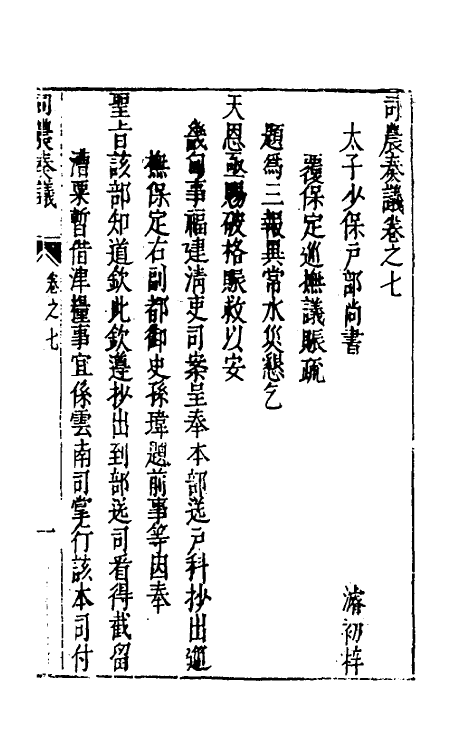 司農奏議卷之七
太子少保戶部尚書　濬初梓
覆保定巡撫議賑疏
題為三報異常水災懇乞
天恩亟賜破格賑救以安
畿甸事福建清吏司案呈奉本部送戶科抄出巡
撫保定右副都御史孫瑋題前事等因奉
聖旨該部知道欽此欽遵抄出到部送司看得截留
漕粟暫借津糧事宜係雲南司掌行該本司付
司農奏議
卷之七
一